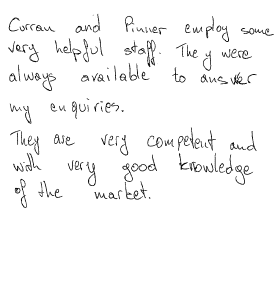 Curran and Pinner employ some
very helpful staff. They were
always available to answer
my enquiries.
They are very competent and
with very good knowledge
of the market.